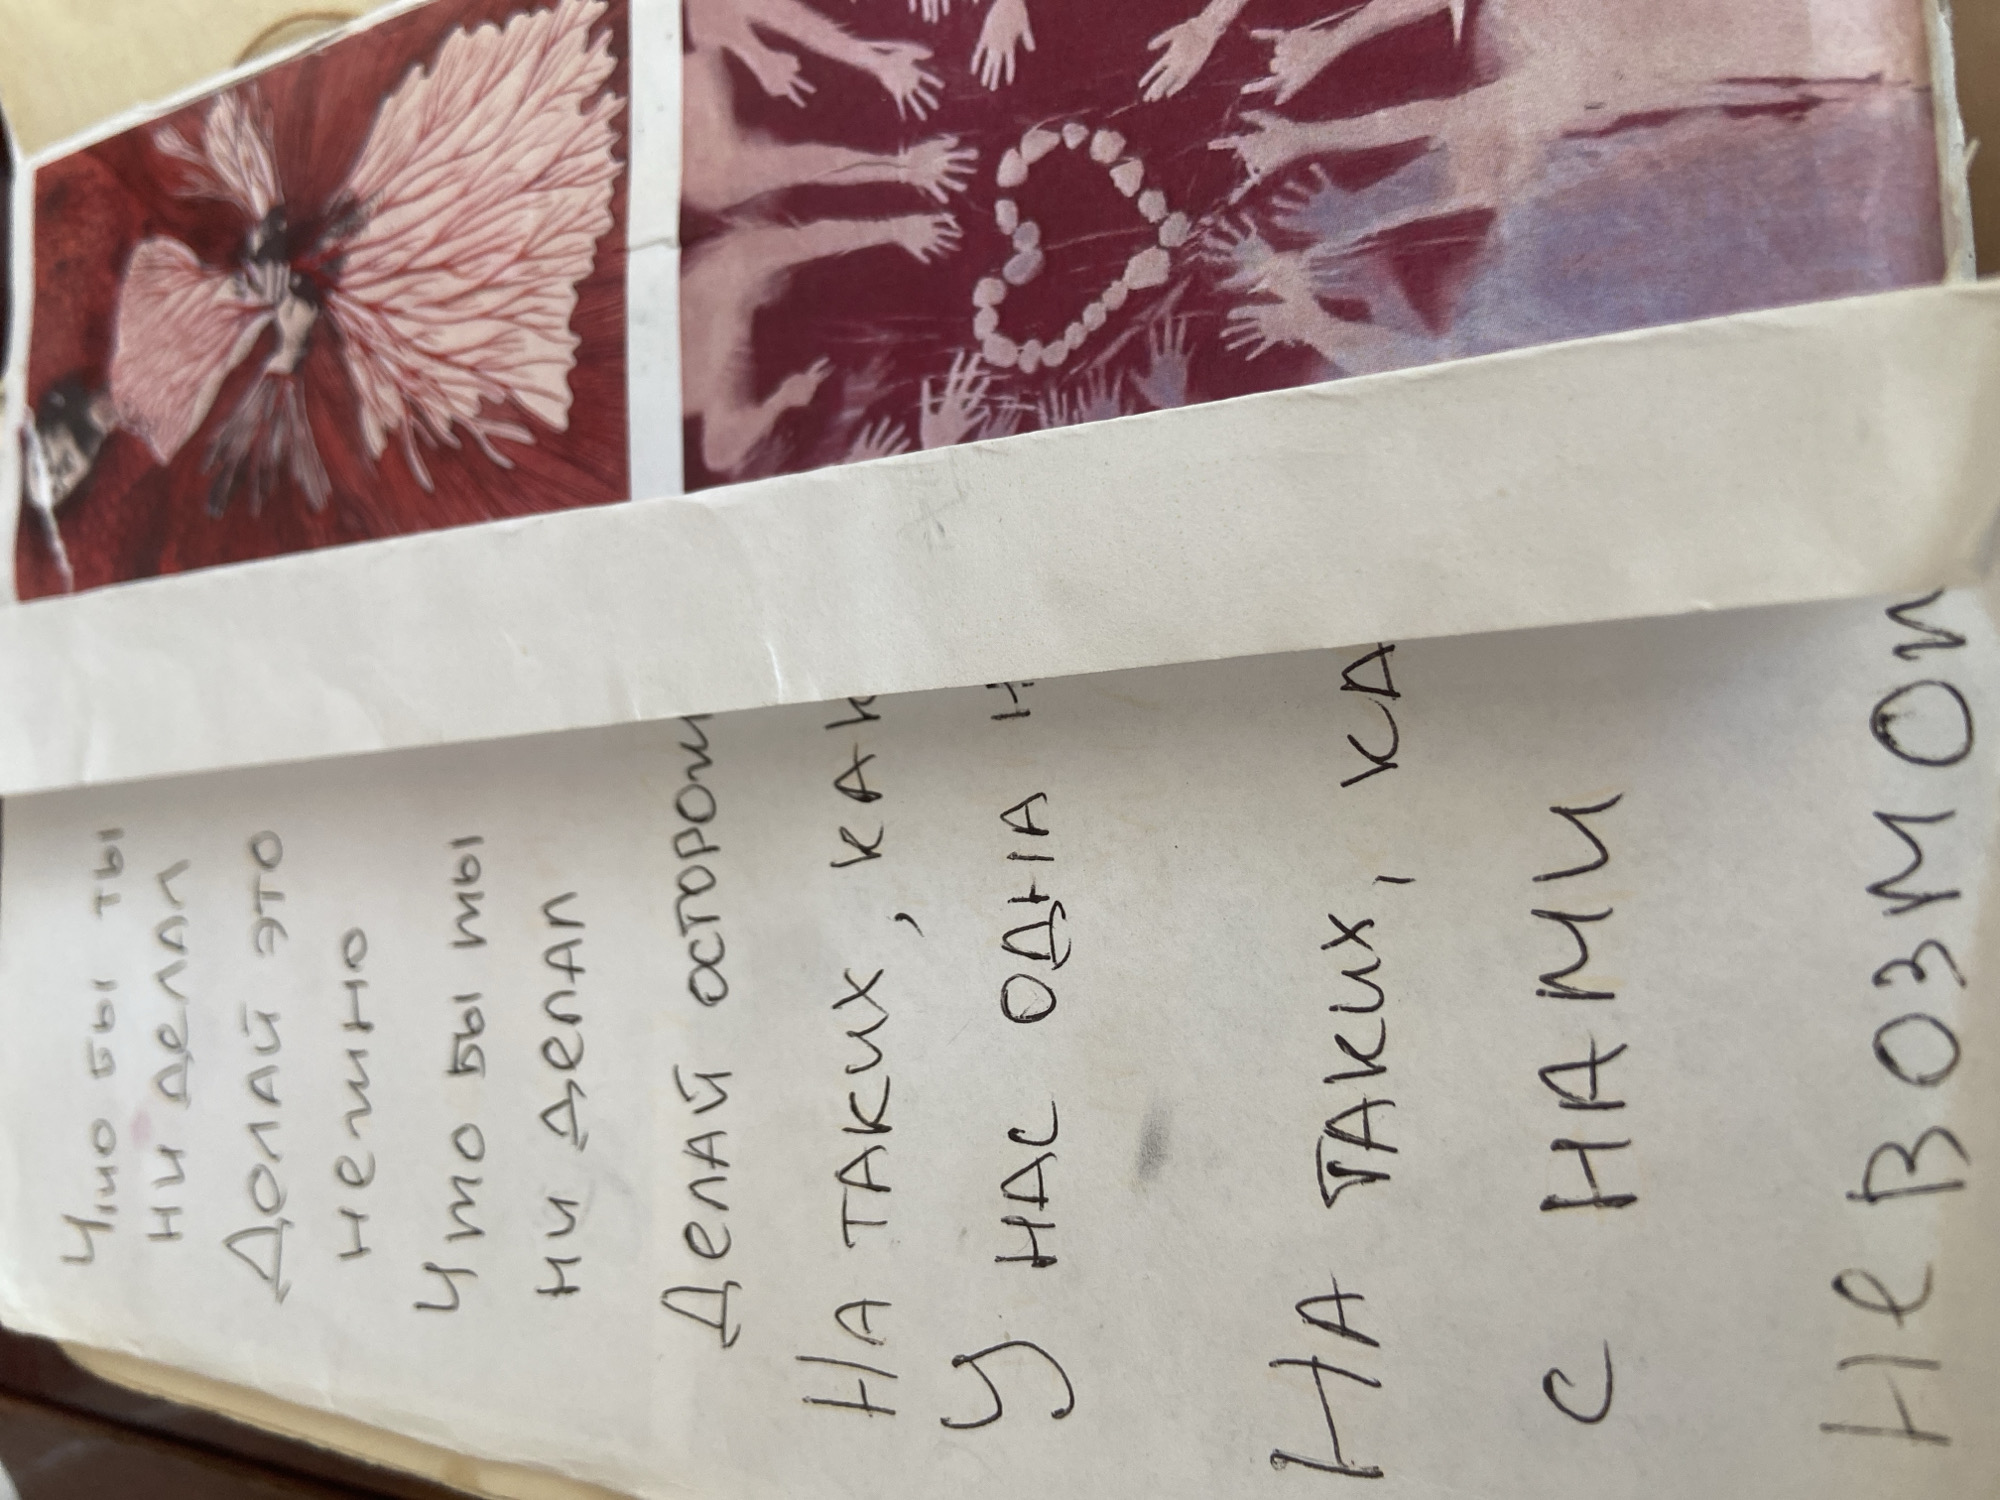 Что бы ты
ни делал
Долай это
нежно
Что бы ты
ни делал
Делай осторож
На таких, как
У нас одна н
На таких, ка
с нами
невозмож